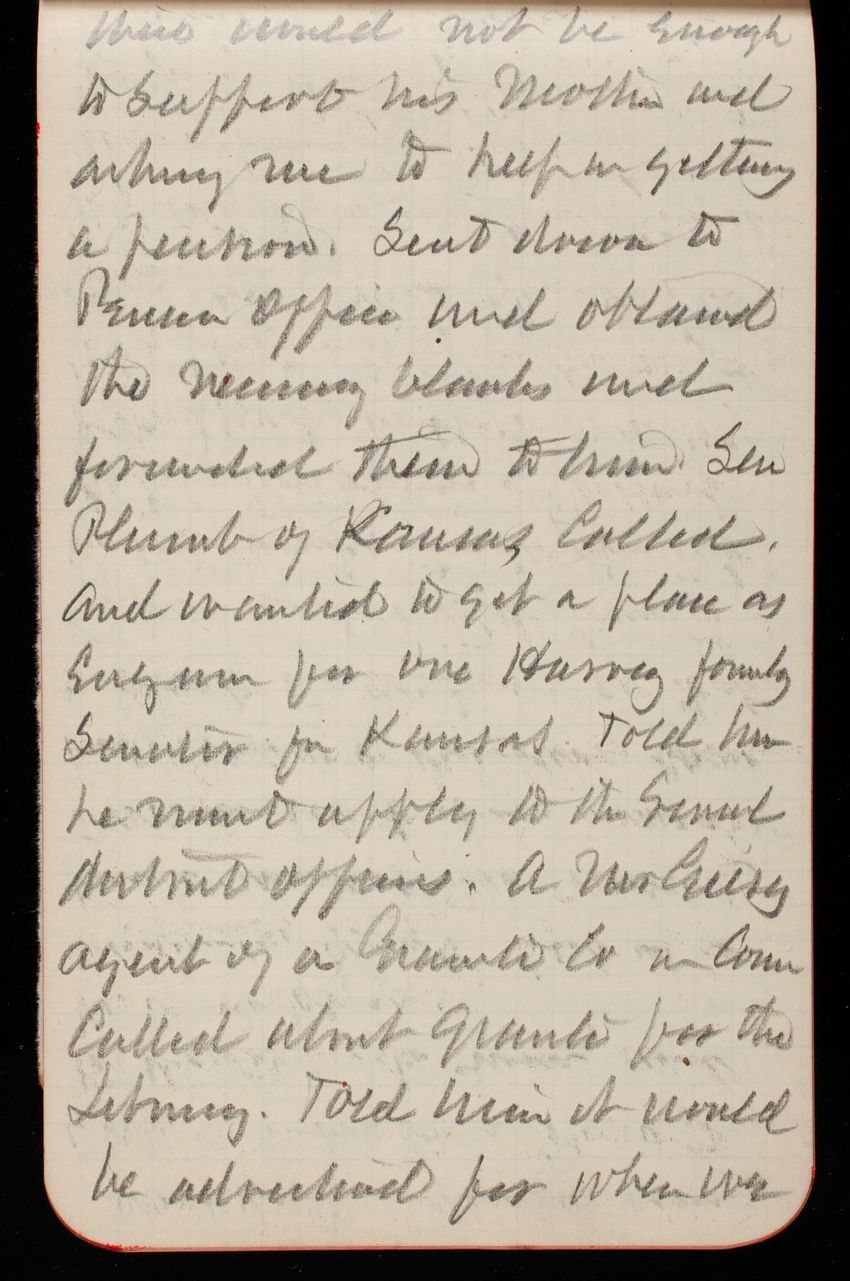 there would not be enough
to support his Mother and
asking me to help in getting
a pension. Sent down to
Pension Office and obtained
the necessary blanks and
forwarded them to him. Sen
Plumb of Kansas Called.
and wanted to get a place as
for one Harvey formerly
Senator for Kansas. Told him
he must apply to the Several
district officers. A Mr
agent of a Granite Co in Conn
Called about Granite for the
Library. Told him it would
be advertised for when we